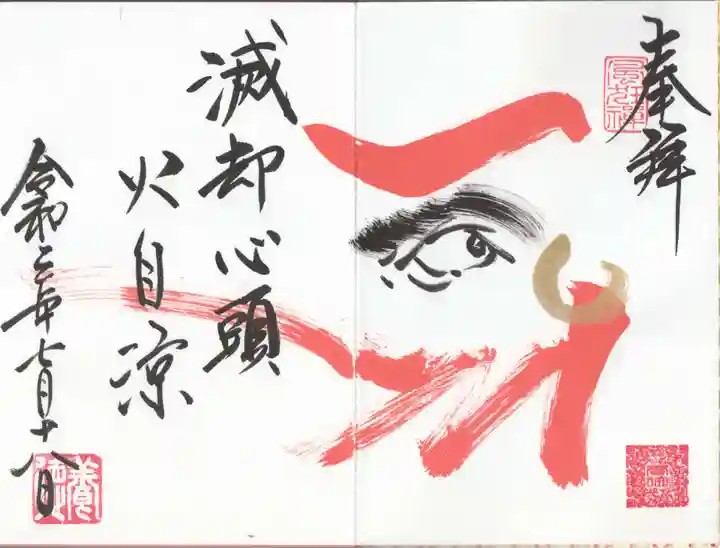 奉拝
滅却心頭
火自凉
令和三年七月十八日